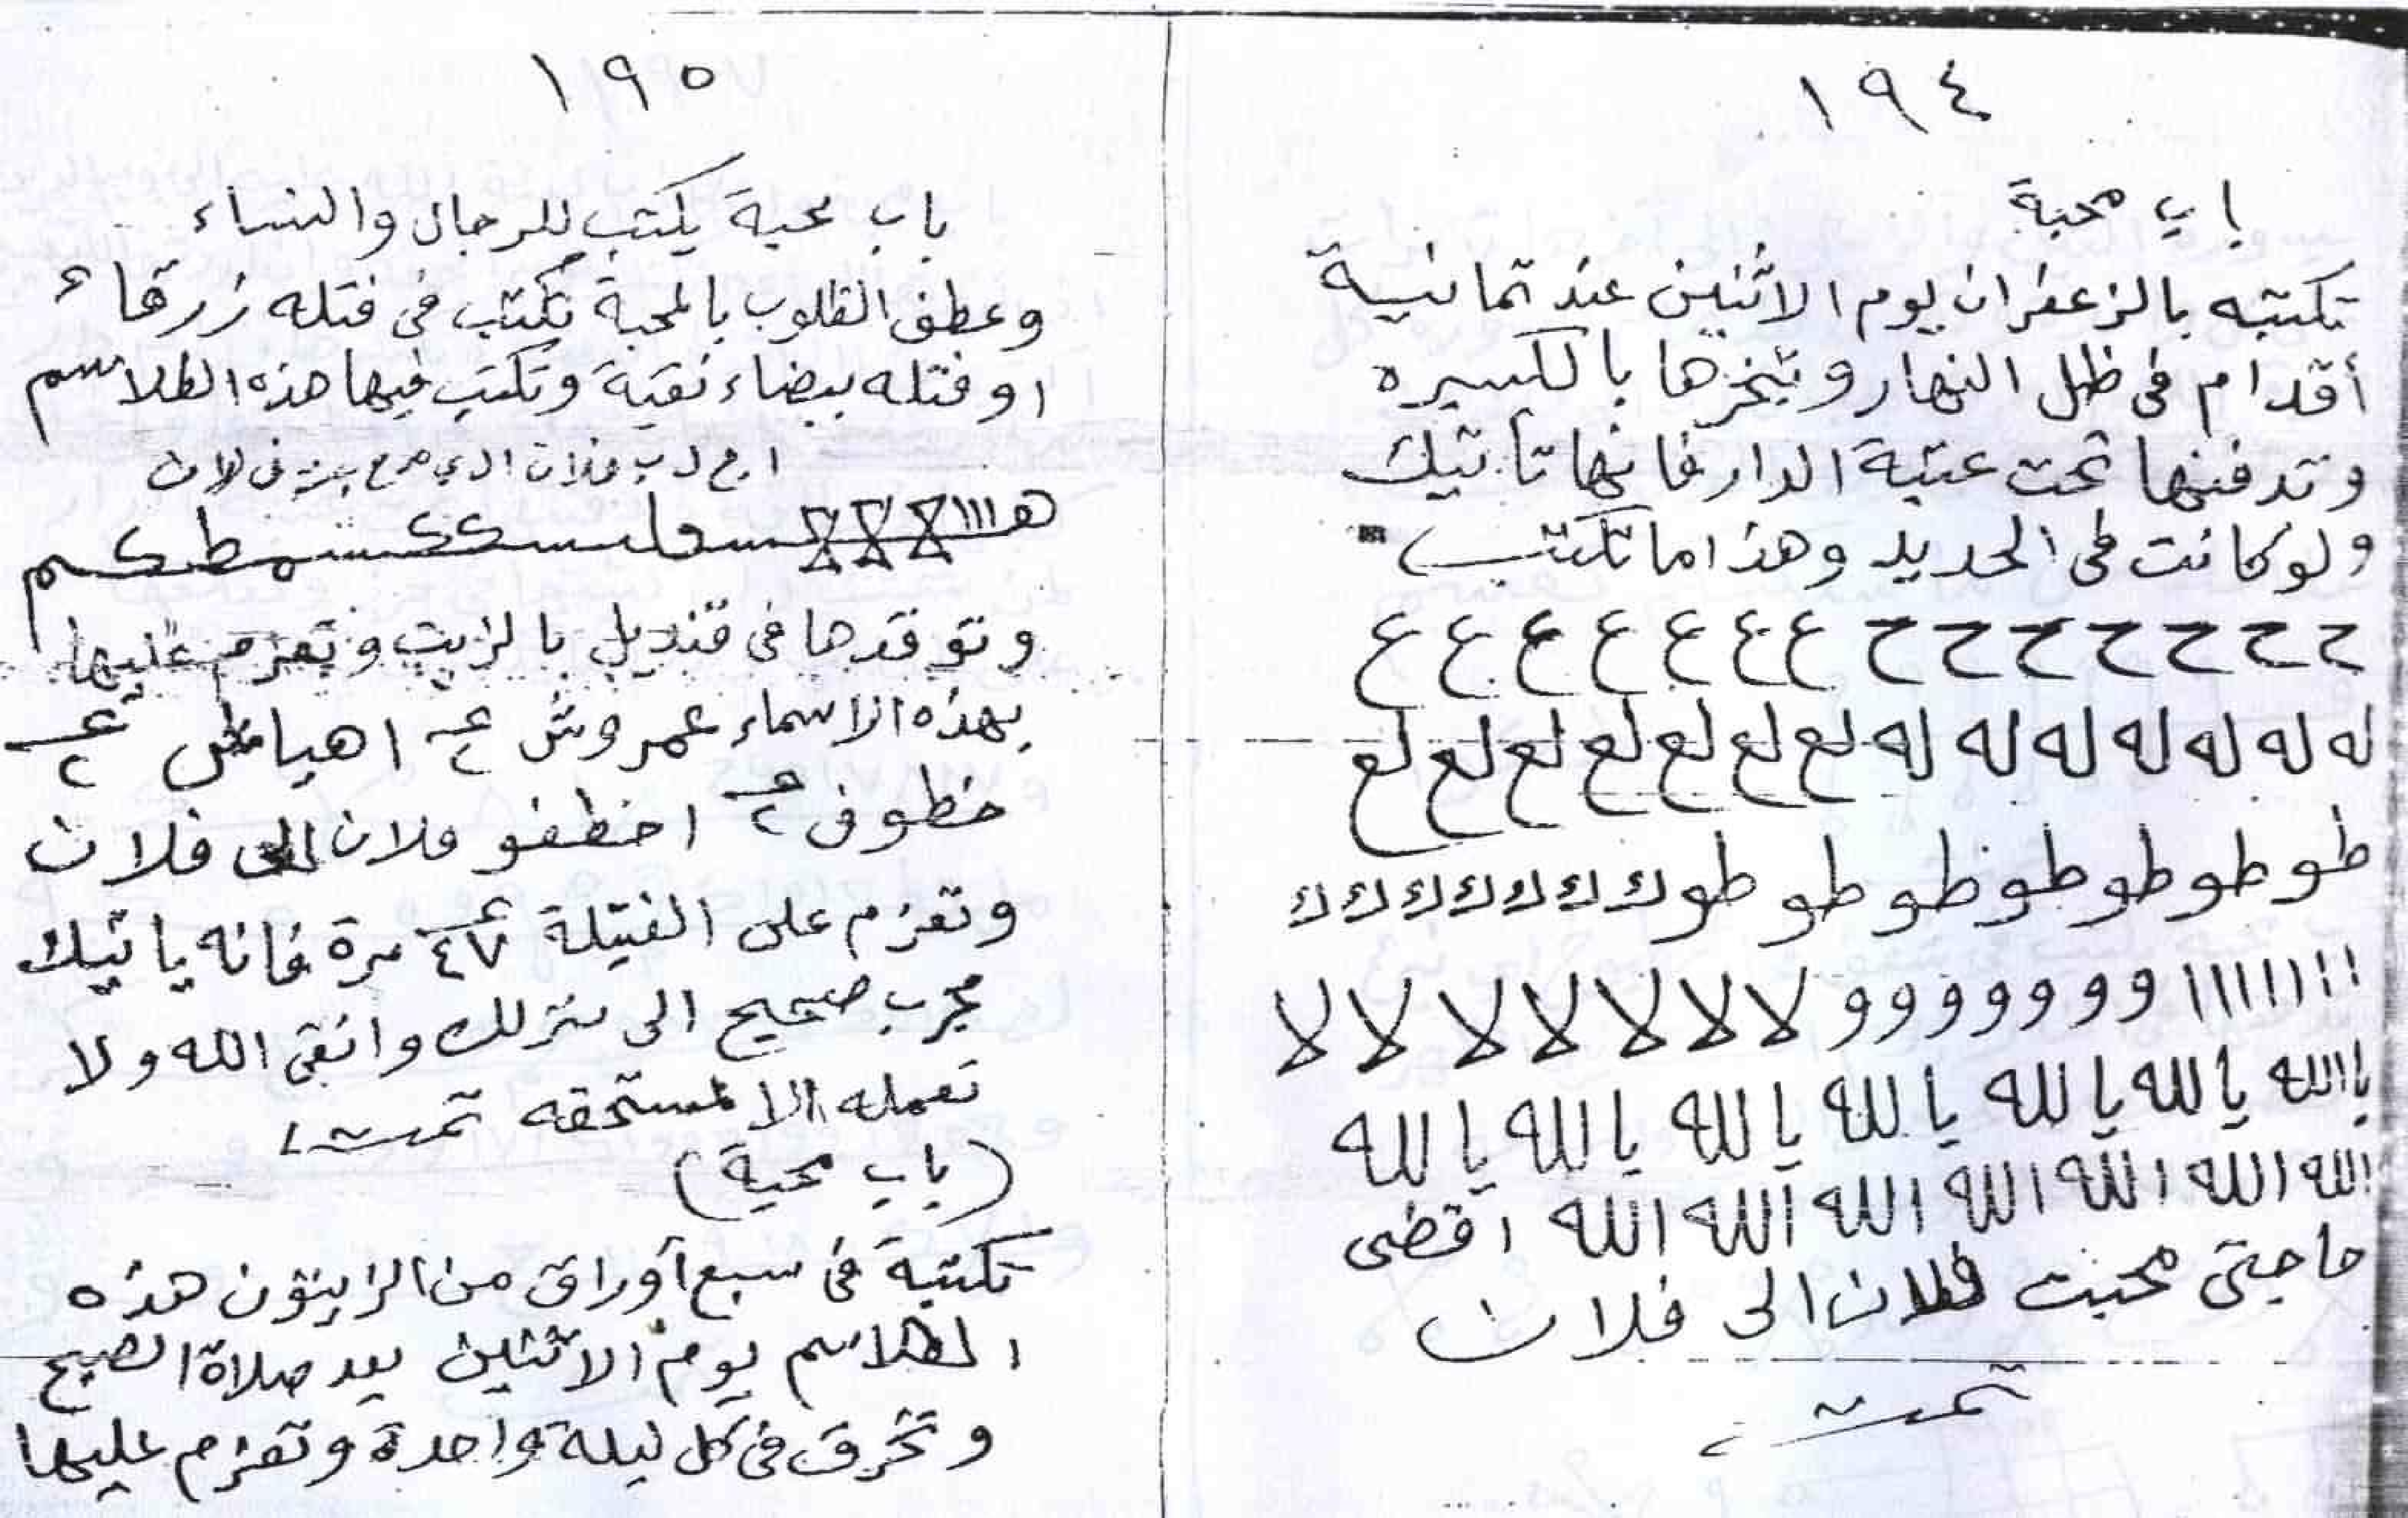 ١٩٤
باب محبة
تكتبه بالزعفران يوم الاثنين عند تمانية
أقدام فى ظل النهار وتبخرها بالكسبره
وتدفنها تحت عتبة الدار فانها تاتيك
ولو كانت فى الحديد وهذا ما تكتب
ح ح ح ح ح ح ح ع ع ع ع ع ع ع
له له له له له له له لع لع لع لع لع لع لع
طو طو طو طو طو طو طو ك ك ك ك ك ك ك
ا ا ا ا ا ا ا و و و و و و و لا لا لا لا لا لا لا
يا الله يا لله يا لله يا لله يا لله يا لله يا لله
الله الله الله الله الله الله الله اقضى
حاجتى محبت فلان الى فلان
تمت
١٩٥
باب محبة يكتب للرجال والنساء
وعطف القلوب بالمحبة تكتب فى فتله زرقاء
او فتله بيضاء نقية وتكتب فيها هذه الطلاسم
وتوقدها فى قنديل بالزيت وتعزم عليها
بهذه الاسماء عمروش ع٢ اهياطش ع٢
خطوف ٢ اخطفو فلان الى فلان
وتعزم على الفتيلة ٤٧ مرة فانه ياتيك
مجرب صحيح الى منزلك واتقى الله ولا
تعمله الا لمستحقه تمت
(باب محبة)
تكتبة فى سبع أوراق من الزيتون هذه
الطلاسم يوم الاثنين بعد صلاة الصبح
وتحرق فى كل ليلة واحدة وتعزم عليها